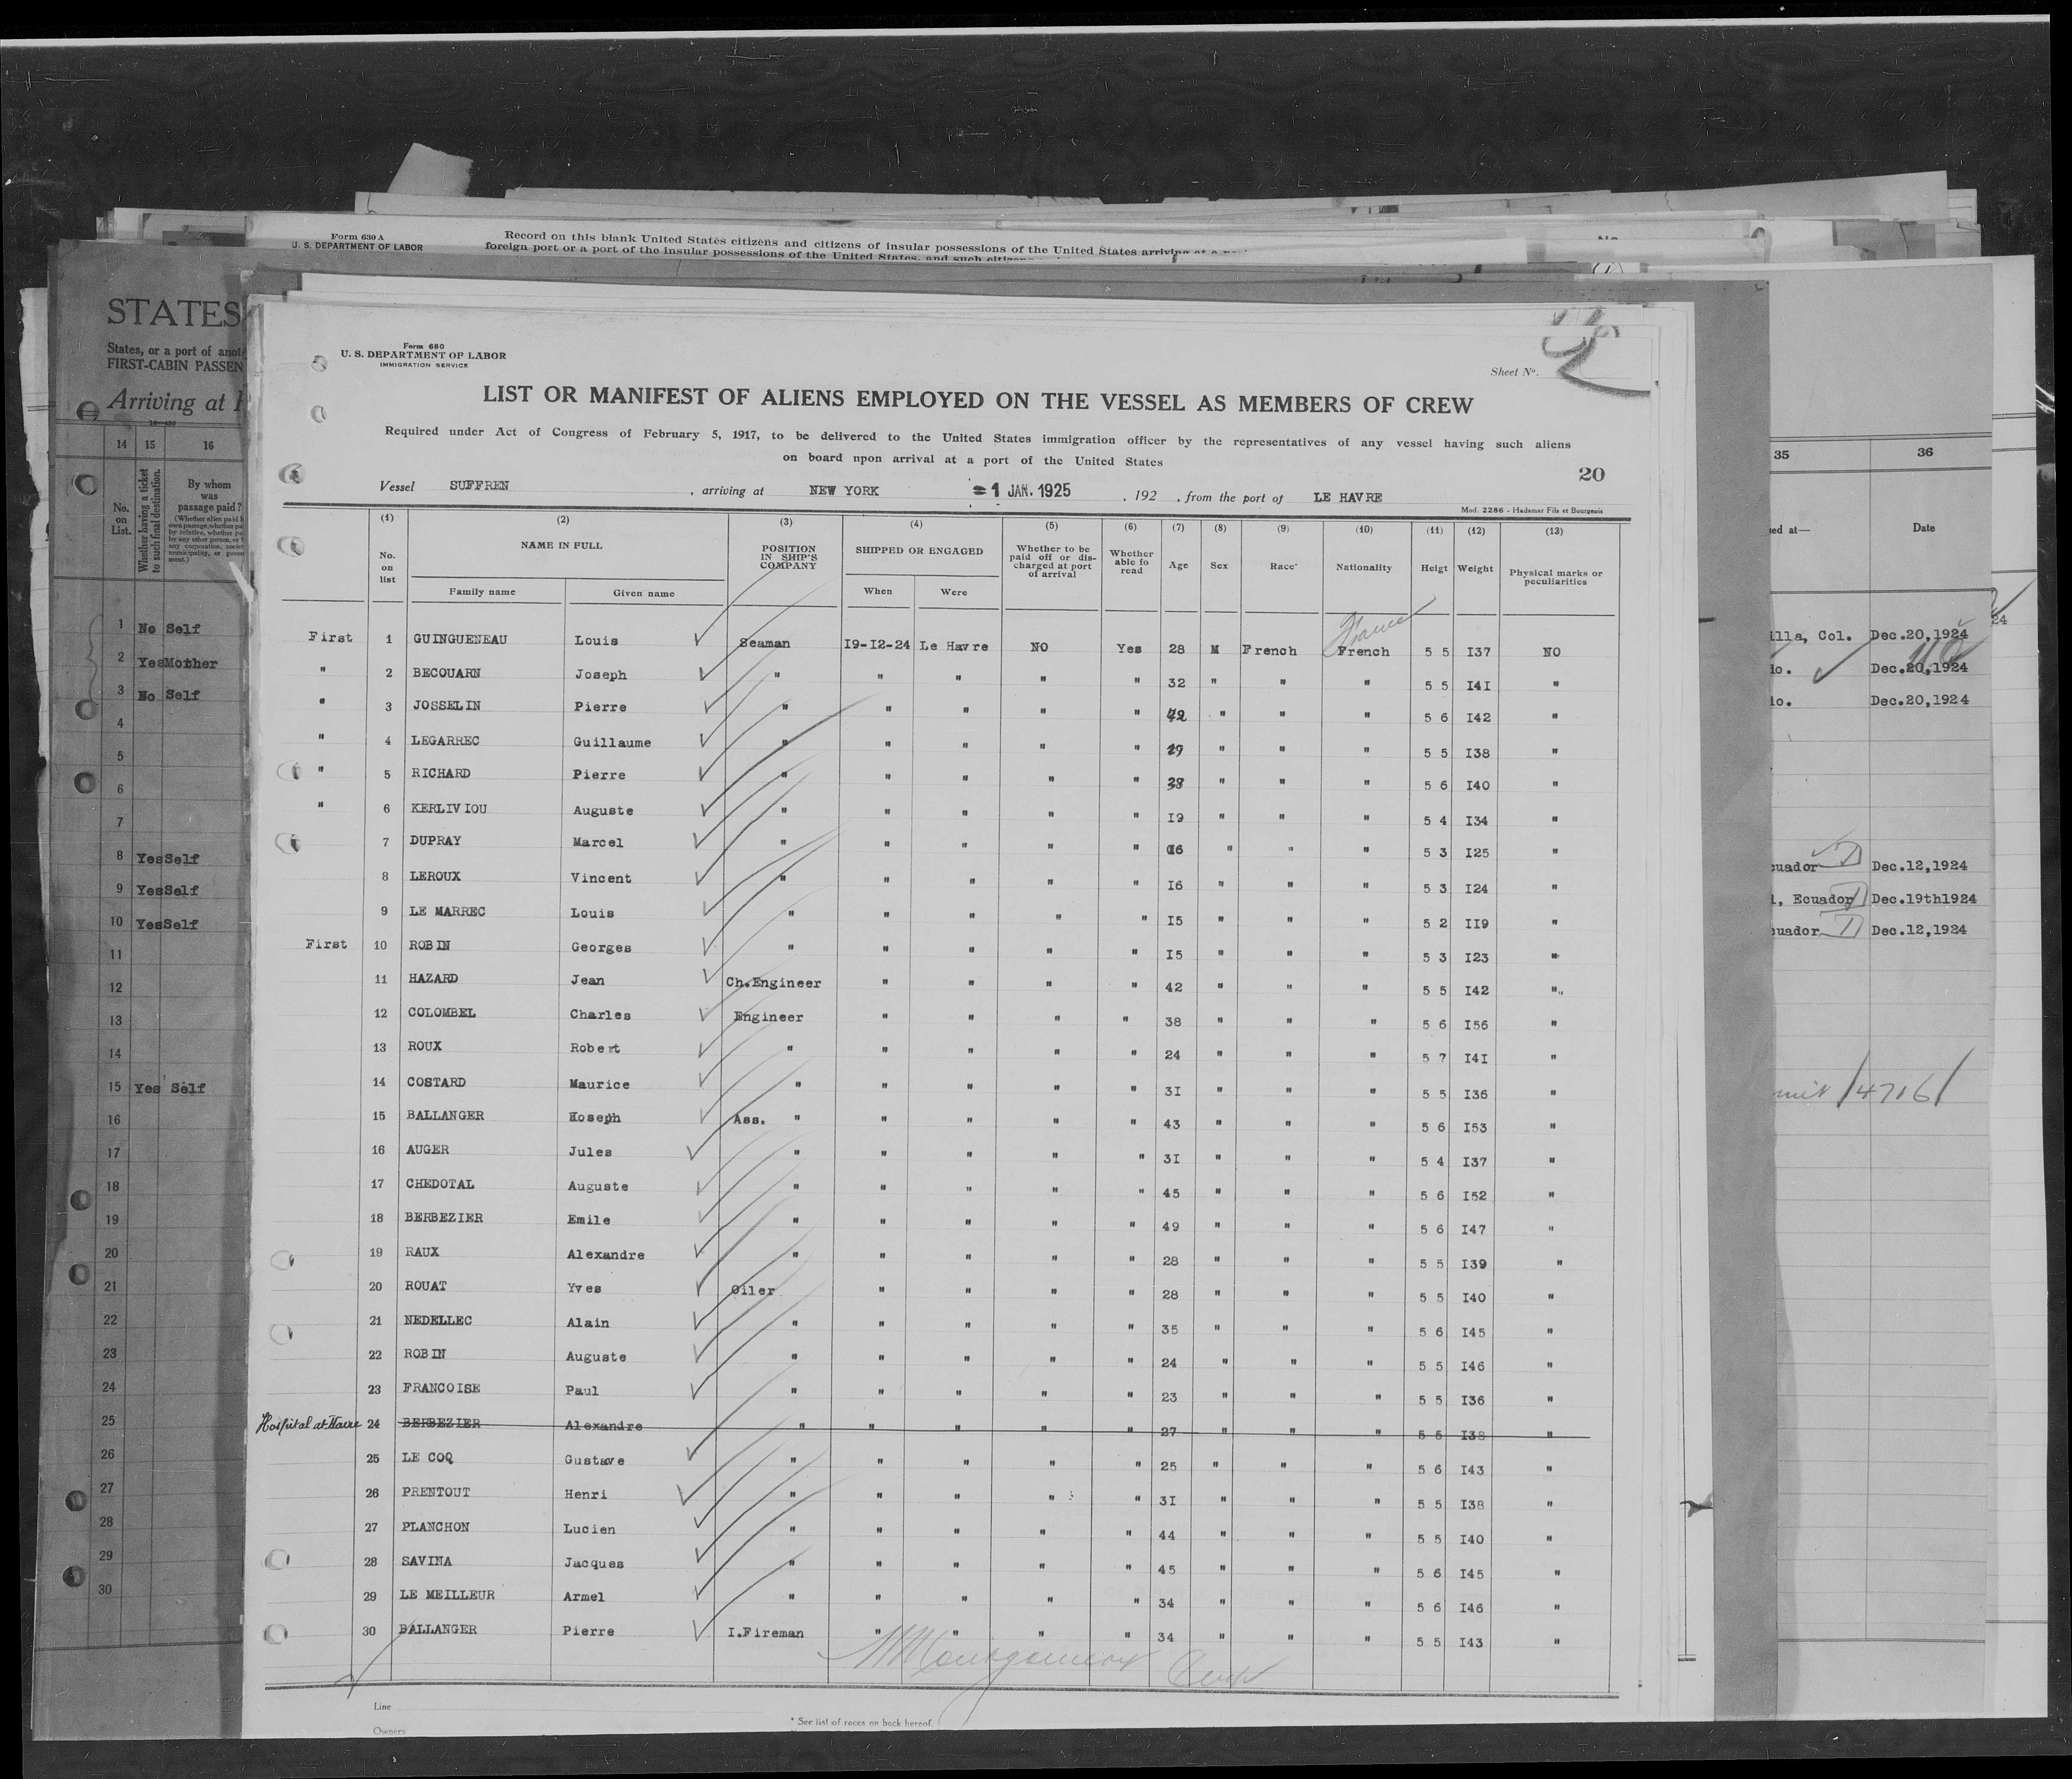 Form 630 A
U. S. DEPARTMENT OF LABOR
Record on this blank United States citizens and citizens of insular possessions of the United States arriving at a
foreign port or a port of the insular possessions of the United States, and such
STATES
States, or a port of
FIRST-CABIN PASSEN
Arriving at
14 15 16
No. on List.
Whether having a ticket to such final destination.
By whom was passage paid?
1 No Self
2 Yes Mother
3 No Self
4
5
6
7
8 Yes Self
9 Yes Self
10 Yes Self
11
12
13
14
15 Yes Self
16
17
18
19
20
21
22
23
24
25
26
27
28
29
30
Form 680
U. S. DEPARTMENT OF LABOR
IMMIGRATION SERVICE
Sheet No.
LIST OR MANIFEST OF ALIENS EMPLOYED ON THE VESSEL AS MEMBERS OF CREW
Required under Act of Congress of February 5, 1917, to be delivered to the United States immigration officer by the representatives of any vessel having such aliens
on board upon arrival at a port of the United States
20
Vessel SUFFREN , arriving at NEW YORK =1 JAN. 1925 , 192 , from the port of LE HAVRE
Mod. 2286 - Hadamar Fils et Bourgeois
(1) (2) (3) (4) (5) (6) (7) (8) (9) (10) (11) (12) (13)
No. on list
NAME IN FULL
Family name
Given name
POSITION IN SHIP'S COMPANY
SHIPPED OR ENGAGED
When
Were
Whether to be paid off or discharged at port of arrival
Whether able to read
Age
Sex
Race*
Nationality
Heigt
Weight
Physical marks or peculiarities
France
First 1 GUINGUENEAU Louis Seaman I9-I2-24 Le Havre NO Yes 28 M French French 5 5 I37 NO
" 2 BECOUARN Joseph " " " " " 32 " " " 5 5 I4I "
" 3 JOSSELIN Pierre " " " " " 42 " " " 5 6 I42 "
" 4 LEGARREC Guillaume " " " " " 29 " " " 5 5 I38 "
" 5 RICHARD Pierre " " " " " " " " 5 6 I40 "
" 6 KERLIVIOU Auguste " " " " " I9 " " " 5 4 I34 "
7 DUPRAY Marcel " " " " " 16 " " " 5 3 I25 "
8 LEROUX Vincent " " " " " I6 " " " 5 3 I24 "
9 LE MARREC Louis " " " " " I5 " " " 5 2 II9 "
First 10 ROBIN Georges " " " " " I5 " " " 5 3 I23 "
11 HAZARD Jean Ch.Engineer " " " " 42 " " " 5 5 I42 "
12 COLOMBEL Charles Engineer " " " " 38 " " " 5 6 I56 "
13 ROUX Robert " " " " " 24 " " " 5 7 I4I "
14 COSTARD Maurice " " " " " 3I " " " 5 5 I36 "
15 BALLANGER Hoseph Ass. " " " " " 43 " " " 5 6 I53 "
16 AUGER Jules " " " " " 3I " " " 5 4 I37 "
17 CHEDOTAL Auguste " " " " " 45 " " " 5 6 I52 "
18 BERBEZIER Emile " " " " " 49 " " " 5 6 I47 "
19 RAUX Alexandre " " " " " 28 " " " 5 5 I39 "
20 ROUAT Yves Oiler " " " " 28 " " " 5 5 I40 "
21 NEDELLEC Alain " " " " " 35 " " " 5 6 I45 "
22 ROBIN Auguste " " " " " 24 " " " 5 5 I46 "
23 FRANCOISE Paul " " " " " 23 " " " 5 5 I36 "
Hospital at Havre 24 BERBEZIER Alexandre " " " " " 27 " " " 5 5 I38 "
25 LE COQ Gustave " " " " " 25 " " " 5 6 I43 "
26 PRENTOUT Henri " " " " " 3I " " " 5 5 I38 "
27 PLANCHON Lucien " " " " " 44 " " " 5 5 I40 "
28 SAVINA Jacques " " " " " 45 " " " 5 6 I45 "
29 LE MEILLEUR Armel " " " " " 34 " " " 5 6 I46 "
30 BALLANGER Pierre I.Fireman " " " " 34 " " " 5 5 I43 "
Montgomery
Line
Owners
* See list of races on back hereof.
35 36
ed at— Date
illa, Col. Dec.20,1924
do. Dec.20,1924
do. Dec.20,1924
cuador Dec.12,1924
, Ecuador Dec.19th1924
cuador Dec.12,1924
24